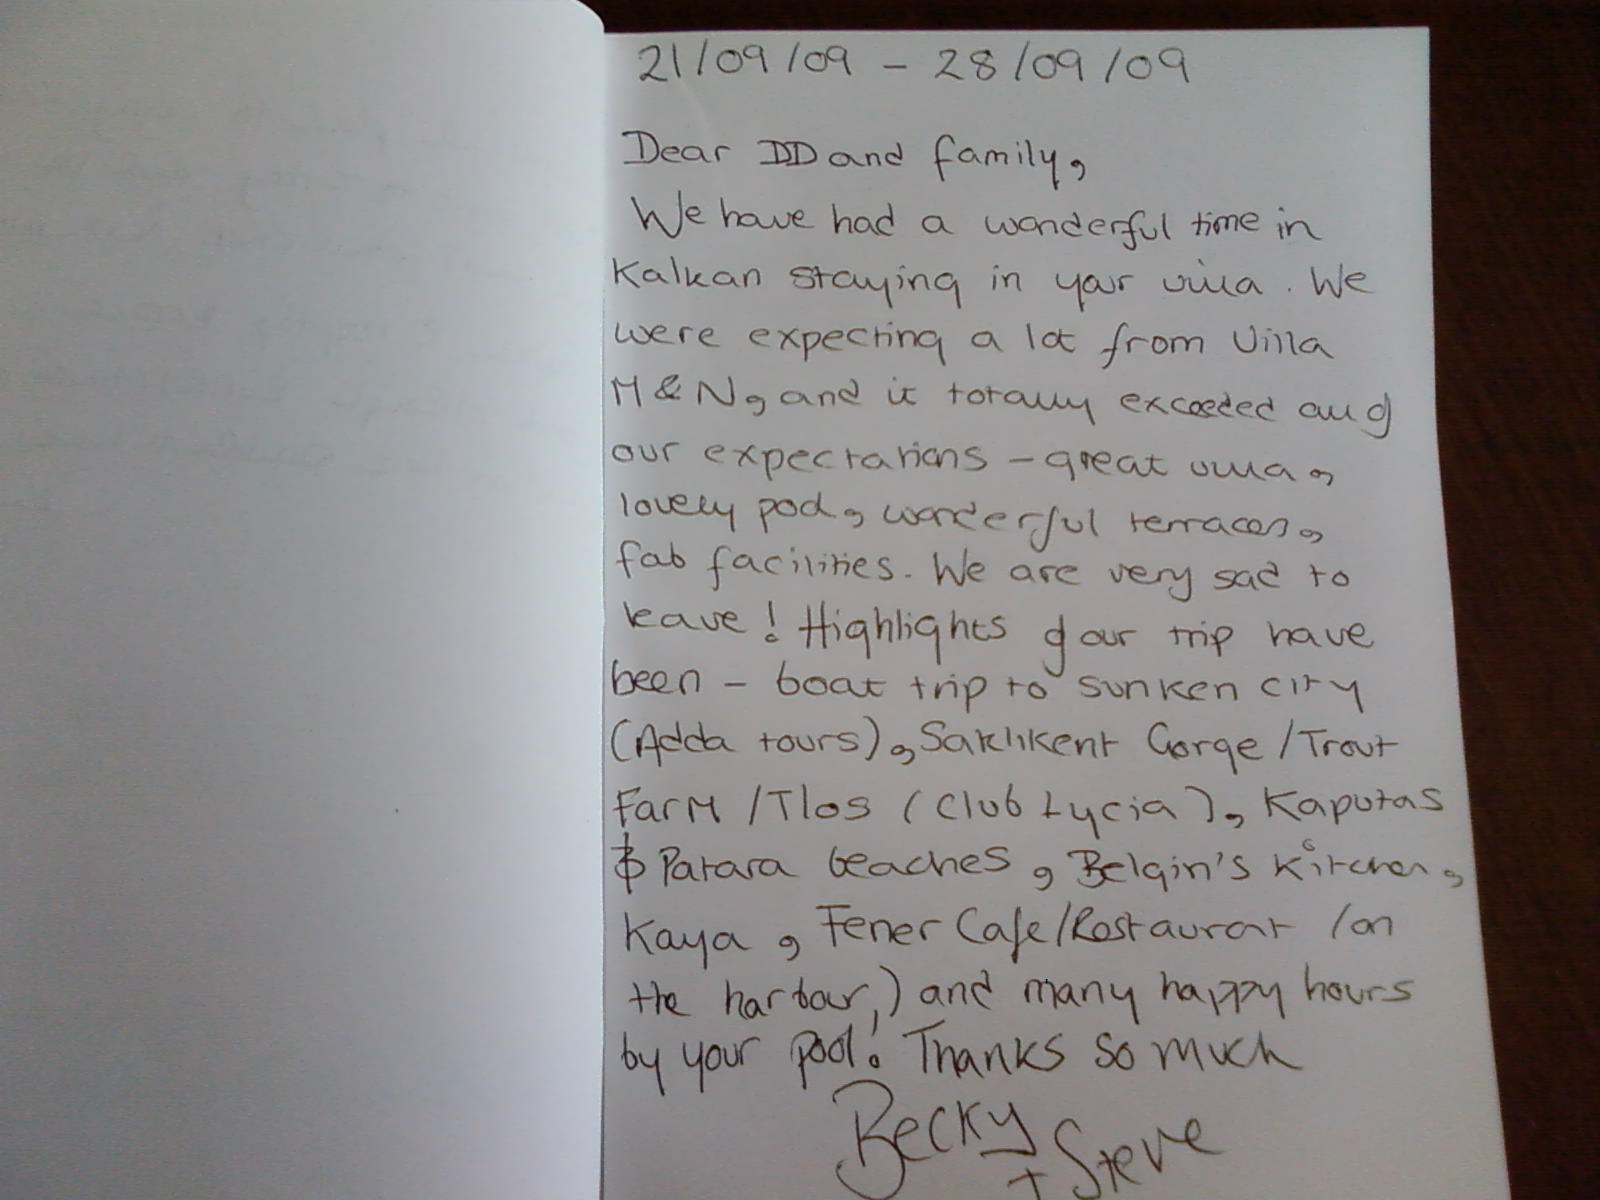 21/09/09 - 28/09/09
Dear DD and family,
We have had a wonderful time in
Kalkan staying in your villa. We
were expecting a lot from Villa
M & N, and it totally exceeded all of
our expectations - great villa,
lovely pool, wonderful terraces,
fab facilities. We are very sad to
leave! Highlights of our trip have
been - boat trip to sunken city
(Adda tours), Saklikent Gorge / Trout
Farm / Tlos (Club Lycia), Kaputas
& Patara beaches, Belgin's Kitchen,
Kaya, Fener Cafe/Restaurant (on
the harbour,) and many happy hours
by your pool! Thanks so much
Becky
+ Steve